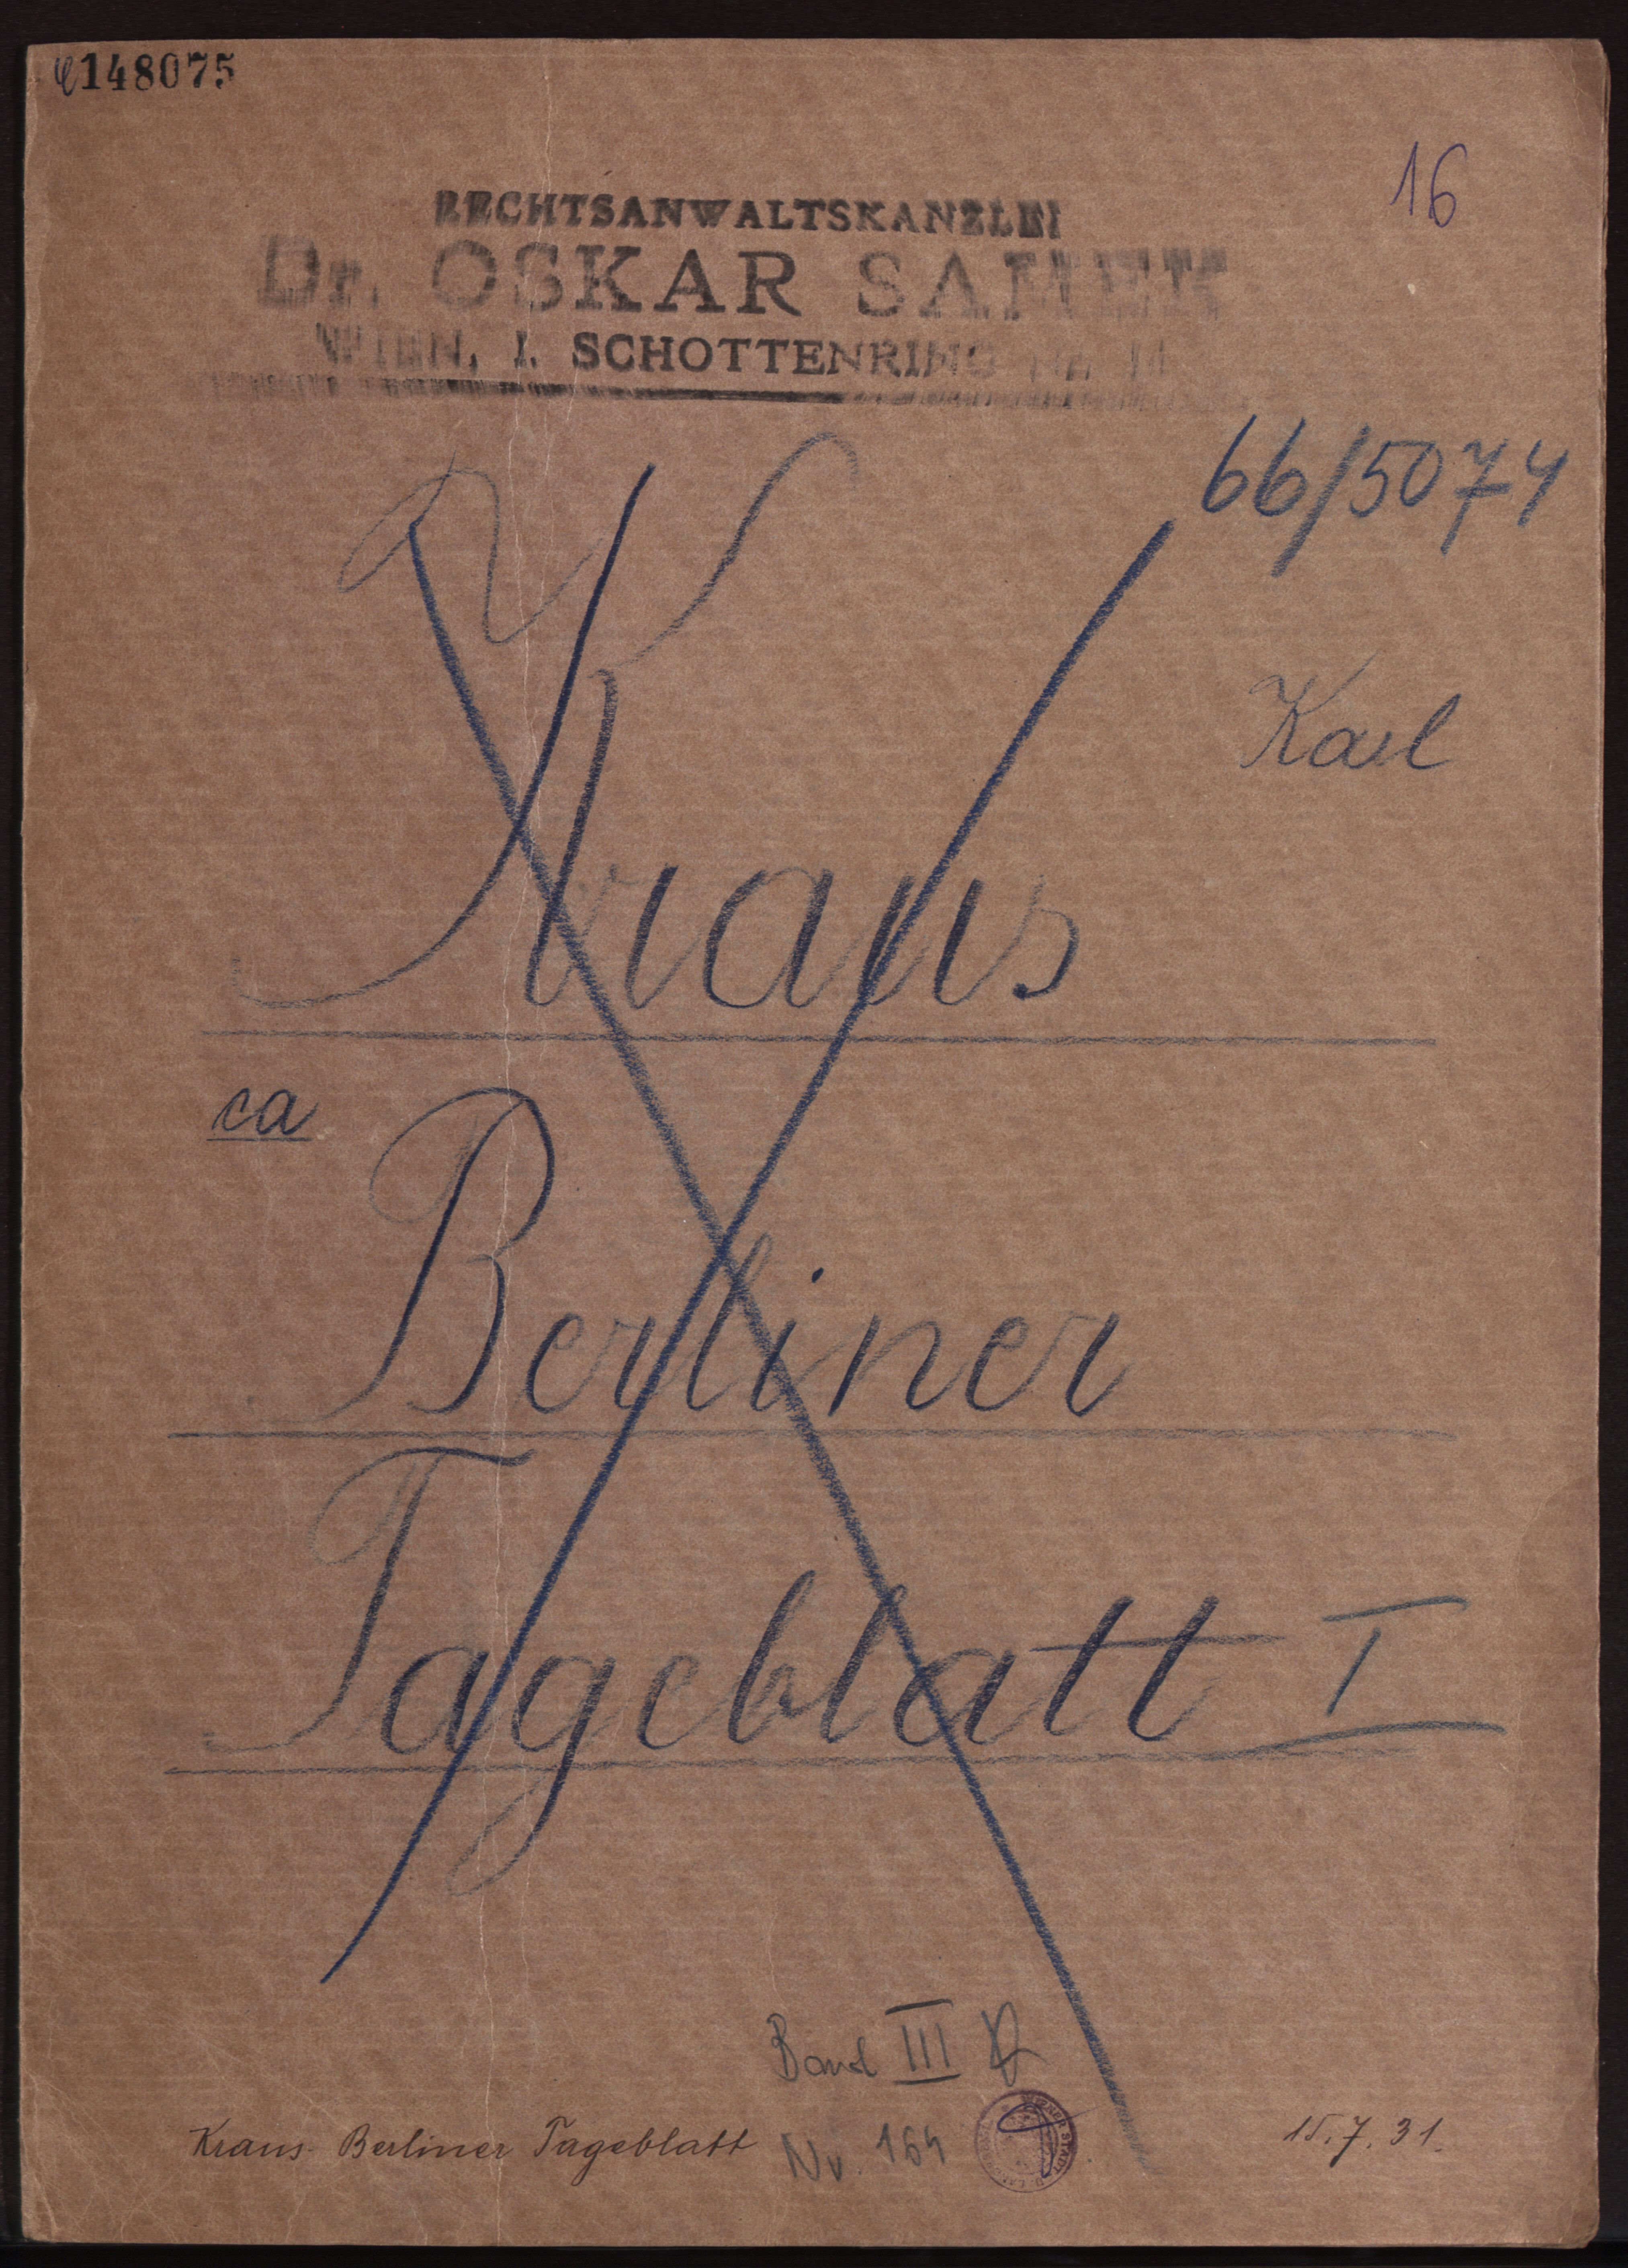 148075
16
RECHTSANWALTSKANZLEI
Dr. OSKAR SAMEK
WIEN, I. SCHOTTENRING NR. 14
66/5074
Karl
Kraus
ca
Berliner
Tageblatt I
Band III
Kraus - Berliner Tageblatt
Nr. 164
15.7.31.